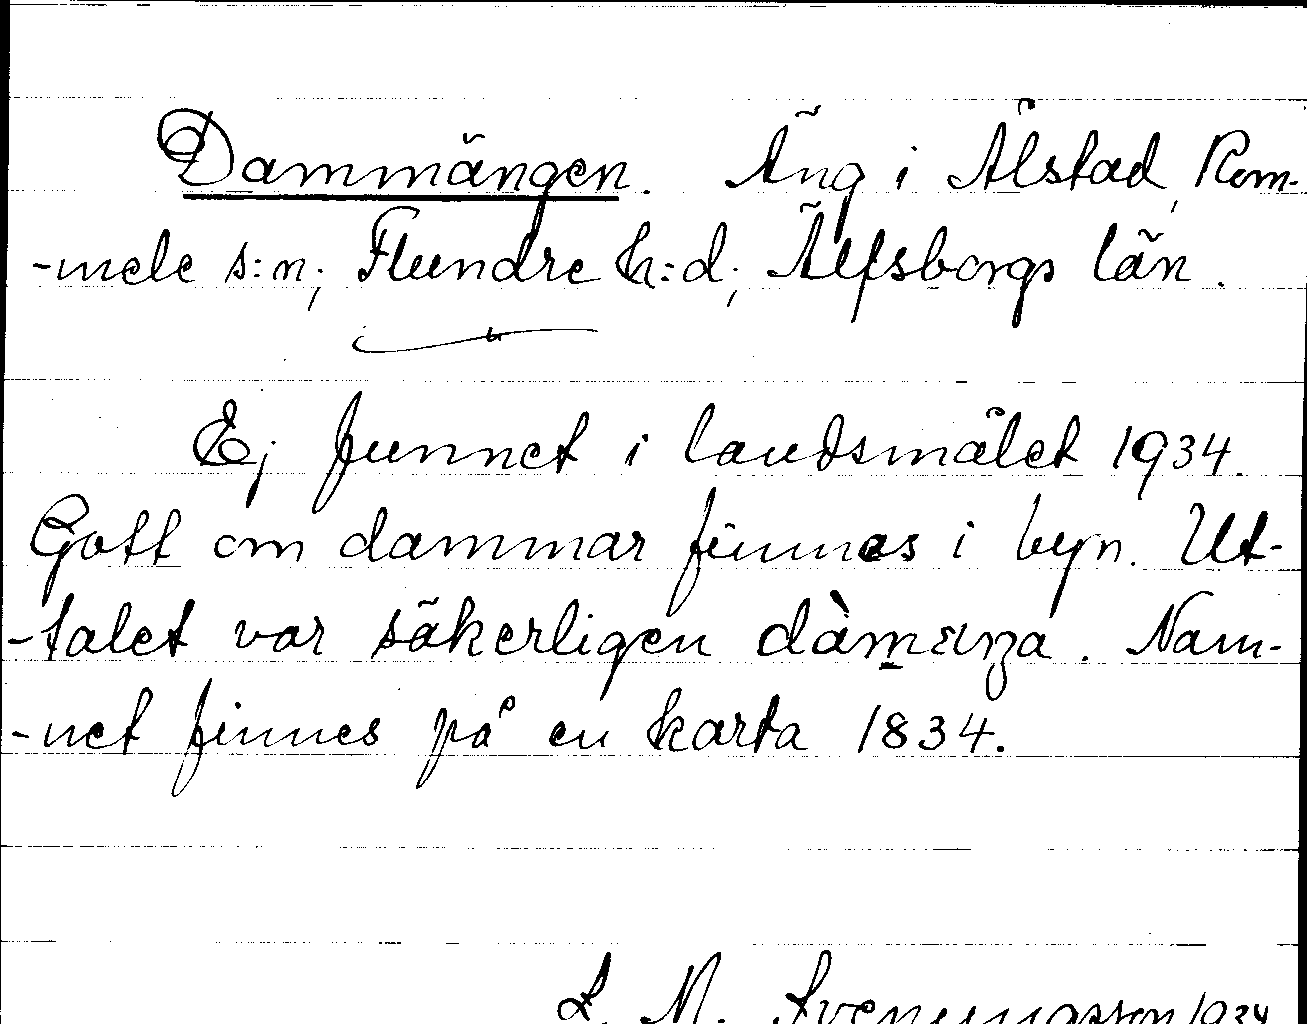 Dammängen. Äng i Ålstad, Rom-
-mele s:n; Flundre h:d; Älfsborgs län.
Ej funnet i landsmålet 1934.
Gott om dammar finnes i byn. Ut-
-talet var säkerligen dàmæŋa. Nam-
-net finnes på en karta 1834.
L. M. Svenungsson 1934